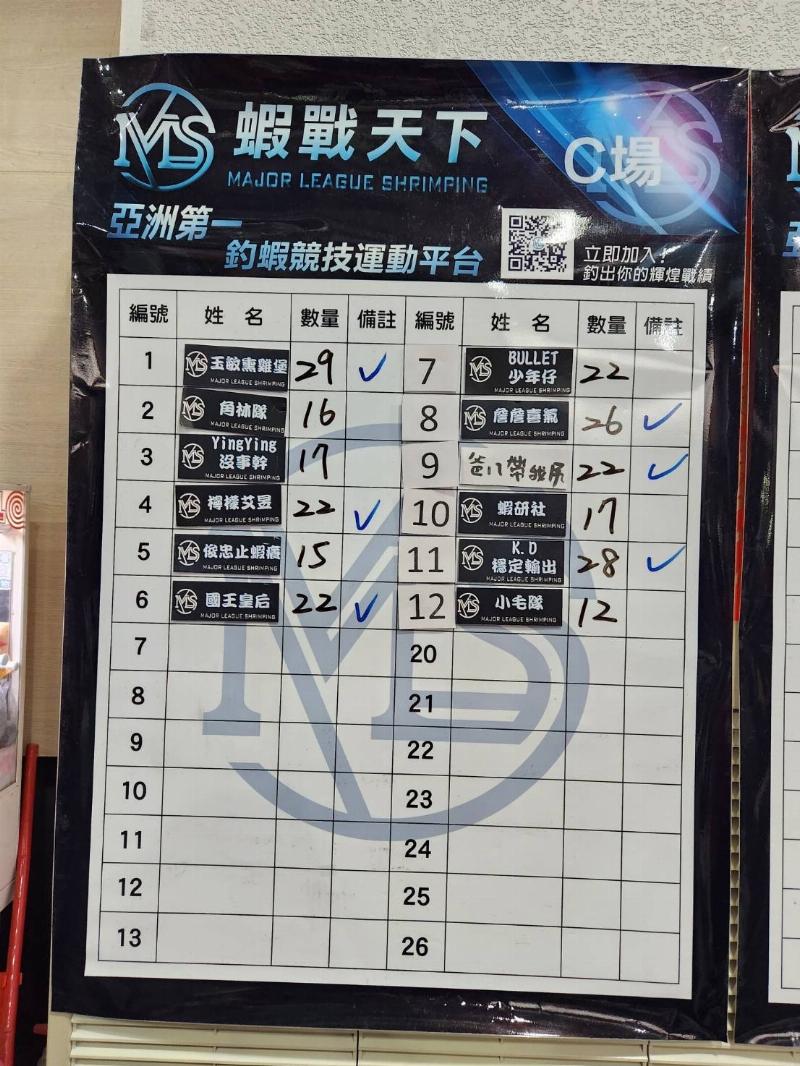 MS 蝦戰天下
MAJOR LEAGUE SHRIMPING
C場
亞洲第一
釣蝦競技運動平台
立即加入!
釣出你的輝煌戰績
編號 姓名 數量 備註 編號 姓名 數量 備註
1 MS 玉敏熏雞堡 MAJOR LEAGUE SHRIMPING 29 ✓ 7 MS BULLET 少年仔 MAJOR LEAGUE SHRIMPING 22
2 MS 角祢隊 MAJOR LEAGUE SHRIMPING 16 8 MS 詹詹喜氣 MAJOR LEAGUE SHRIMPING 26 ✓
3 MS YingYing 沒事幹 MAJOR LEAGUE SHRIMPING 17 9 爸爸帶我尻 22 ✓
4 MS 檸檬艾昱 MAJOR LEAGUE SHRIMPING 22 ✓ 10 MS 蝦研社 MAJOR LEAGUE SHRIMPING 17
5 MS 侯忠止蝦癮 MAJOR LEAGUE SHRIMPING 15 11 MS K.D 穩定輸出 MAJOR LEAGUE SHRIMPING 28 ✓
6 MS 國王皇后 MAJOR LEAGUE SHRIMPING 22 ✓ 12 MS 小毛隊 MAJOR LEAGUE SHRIMPING 12
7 20
8 21
9 22
10 23
11 24
12 25
13 26